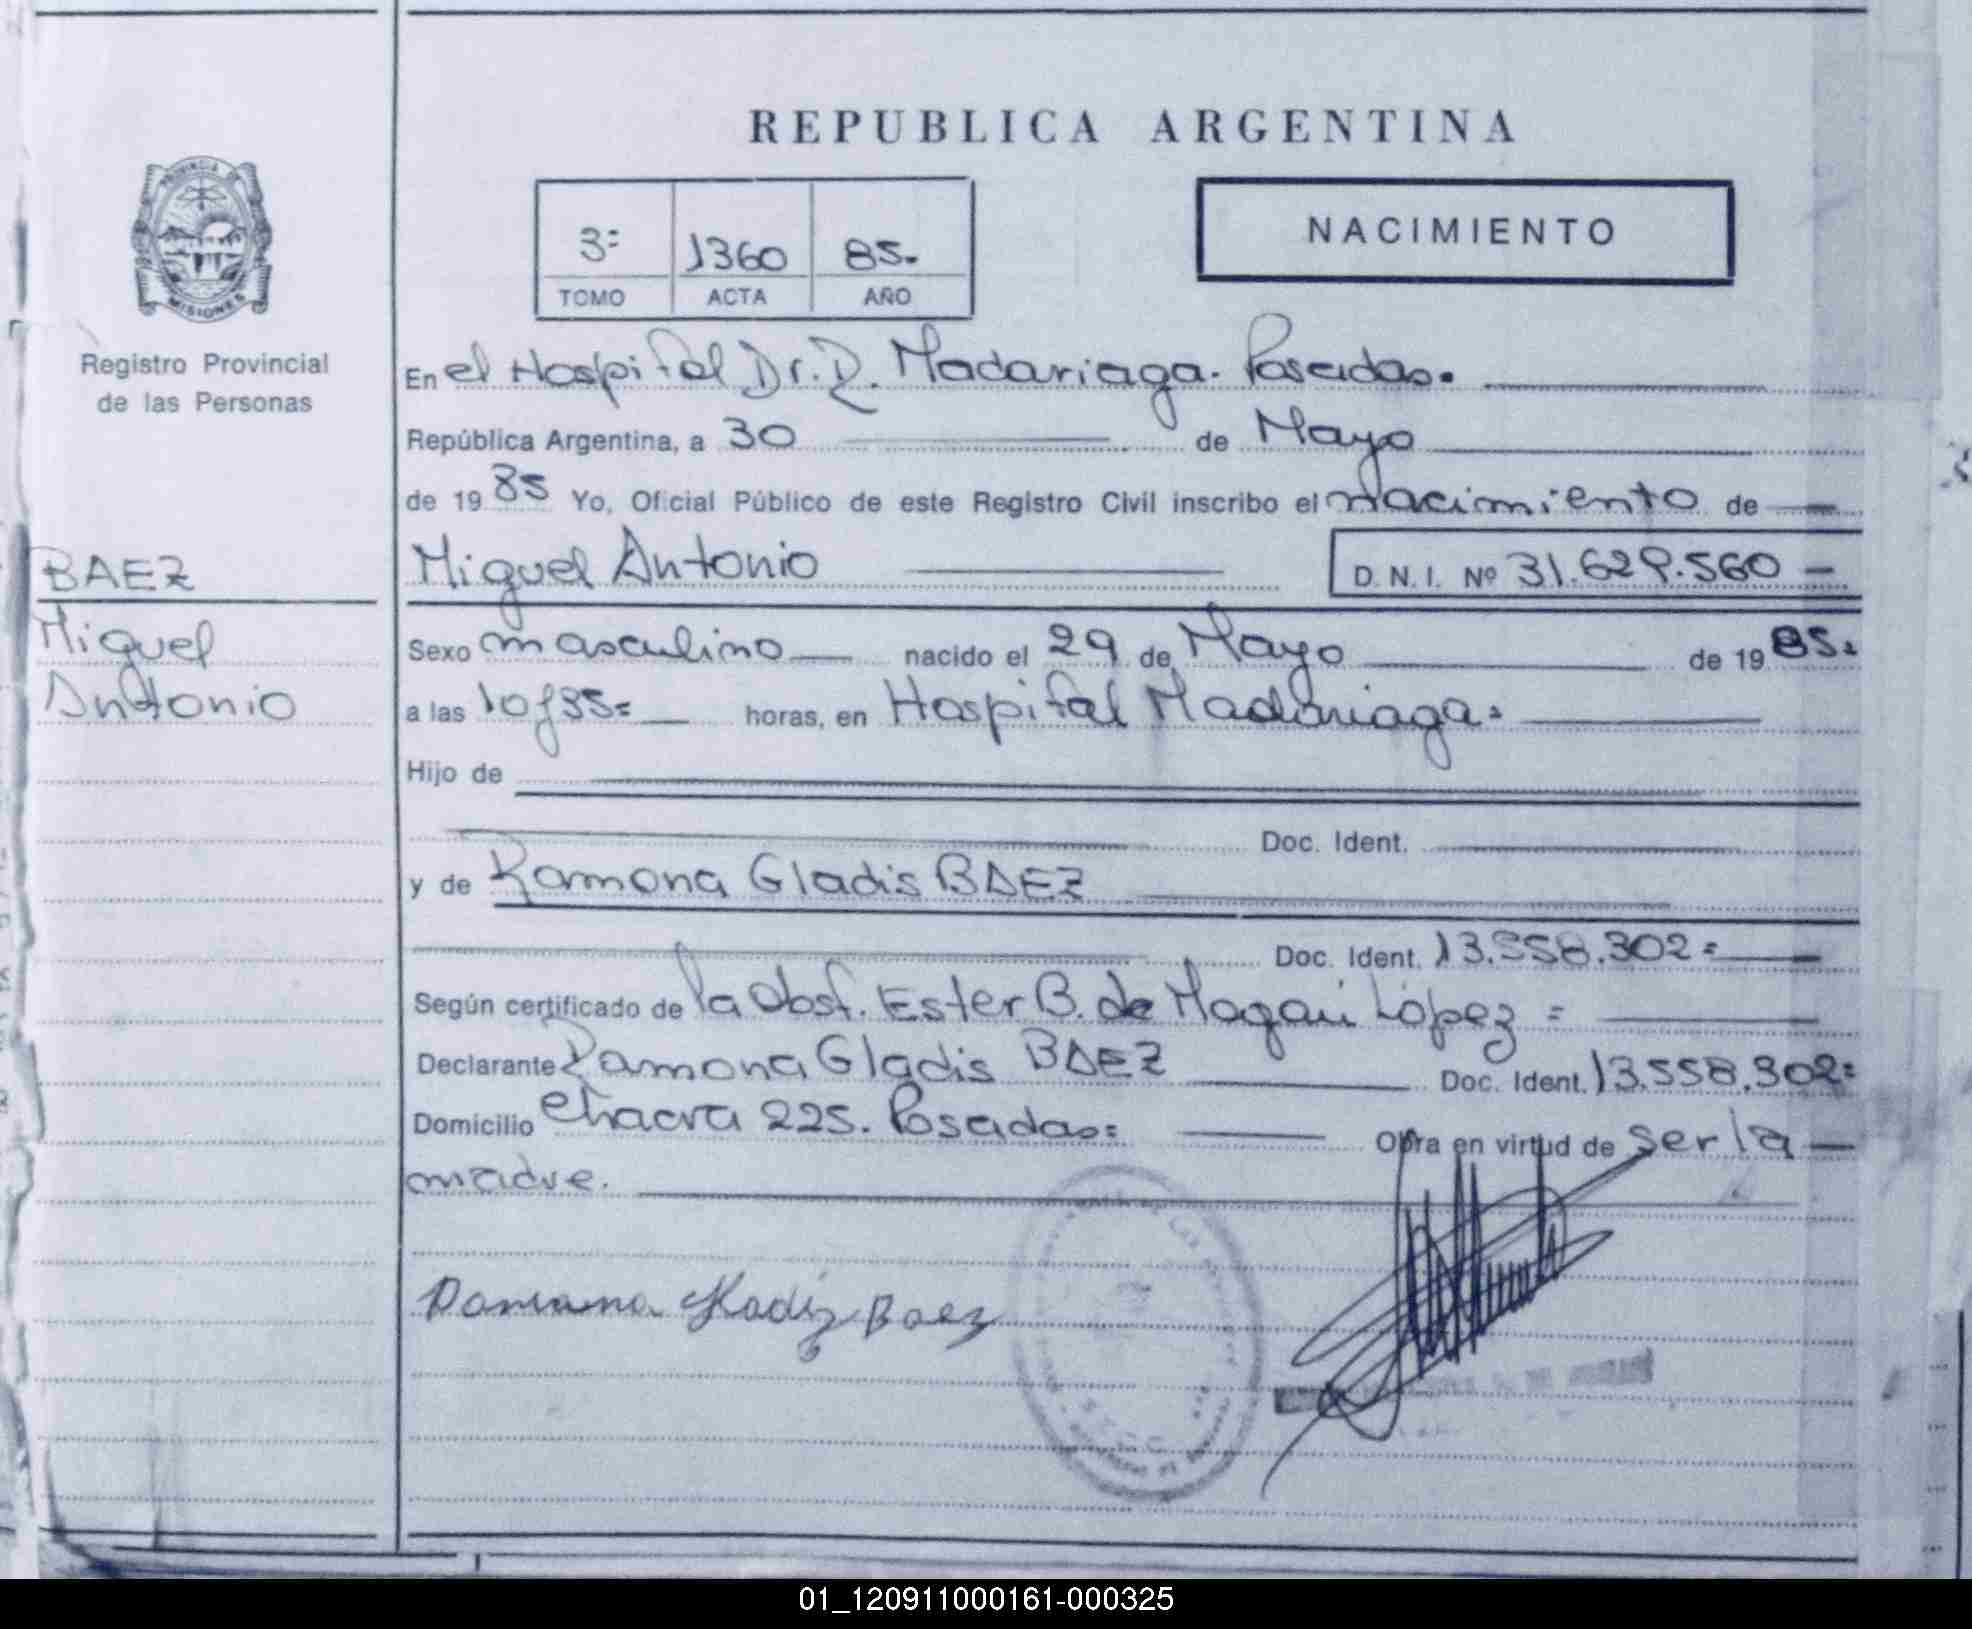 REPUBLICA ARGENTINA
PROVINCIA DE MISIONES
Registro Provincial
de las Personas
3=
1360
85.
TOMO
ACTA
AÑO
NACIMIENTO
En el Hospital Dr. R. Madariaga. Posadas.
República Argentina, a 30 de Mayo
de 19 85 Yo, Oficial Público de este Registro Civil inscribo el nacimiento de
BAEZ
Miguel
Antonio
Miguel Antonio D. N. I. Nº 31.629.560
Sexo masculino nacido el 29 de Mayo de 19 85.
a las 10 y 35= horas, en Hospital Madariaga.
Hijo de
Doc. Ident.
y de Ramona Gladis BAEZ
Doc. Ident. 13.558.302=
Según certificado de la Obst. Ester B. de López =
Declarante Ramona Gladis BAEZ Doc. Ident. 13.558.302=
Domicilio Chacra 225. Posadas= Obra en virtud de ser la
madre.
Ramona Gladiz Baez
01_120911000161-000325